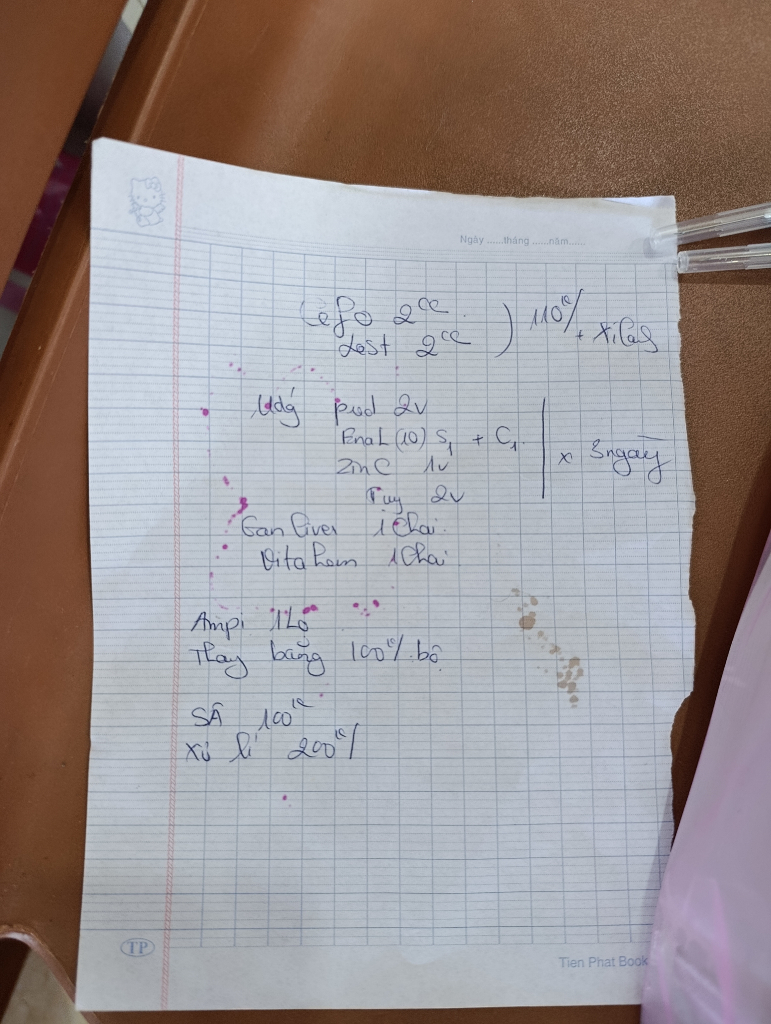 Ngày ......tháng ......năm......
Cefo 2cc ) 110k/ + Xilas
dest 2cc
Uống pred 2v
Enal (10) S1 + C1 x 3ngày
ZinC 1v
Tuy 2v
Gan Liver 1 Chai
Vitahem 1 Chai
Ampi 1Lọ
Thay băng 100k/ bộ
SÂ 100k
Xử lí 200k/
TP
Tien Phat Book